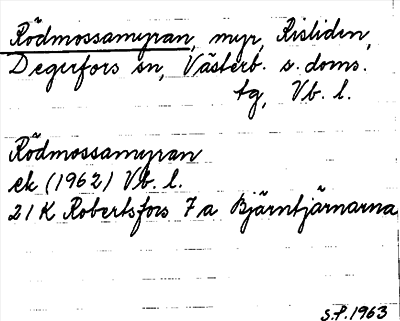 Rödmossamyran, myr, Risliden,
Degerfors sn, Västerb. s. doms.
tg, Vb. l.
Rödmossamyran
ek (1962) Vb. l.
21 K Robertsfors 7 a Bjärntjärnarna
S.P. 1963